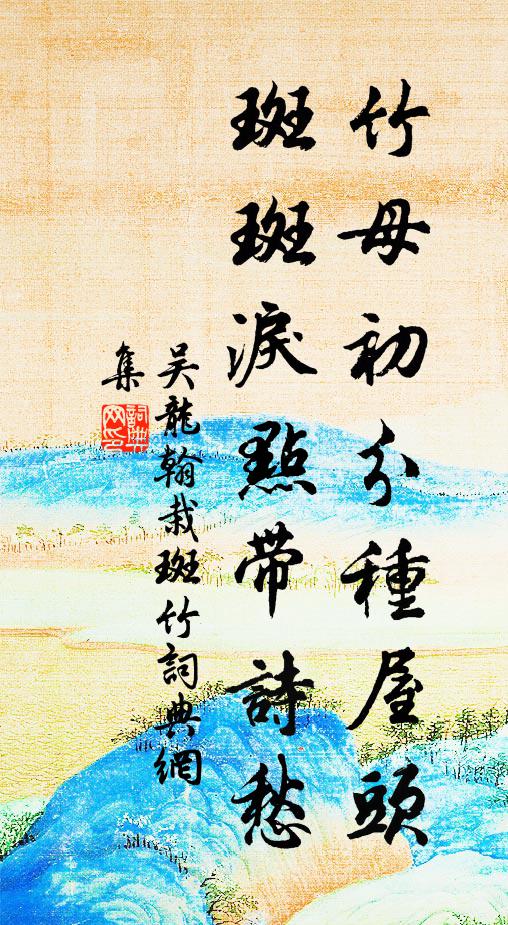 竹母初分種屋頭
斑斑淚點帶詩愁
吴龍翰栽斑竹詞典網
集
詞典網印